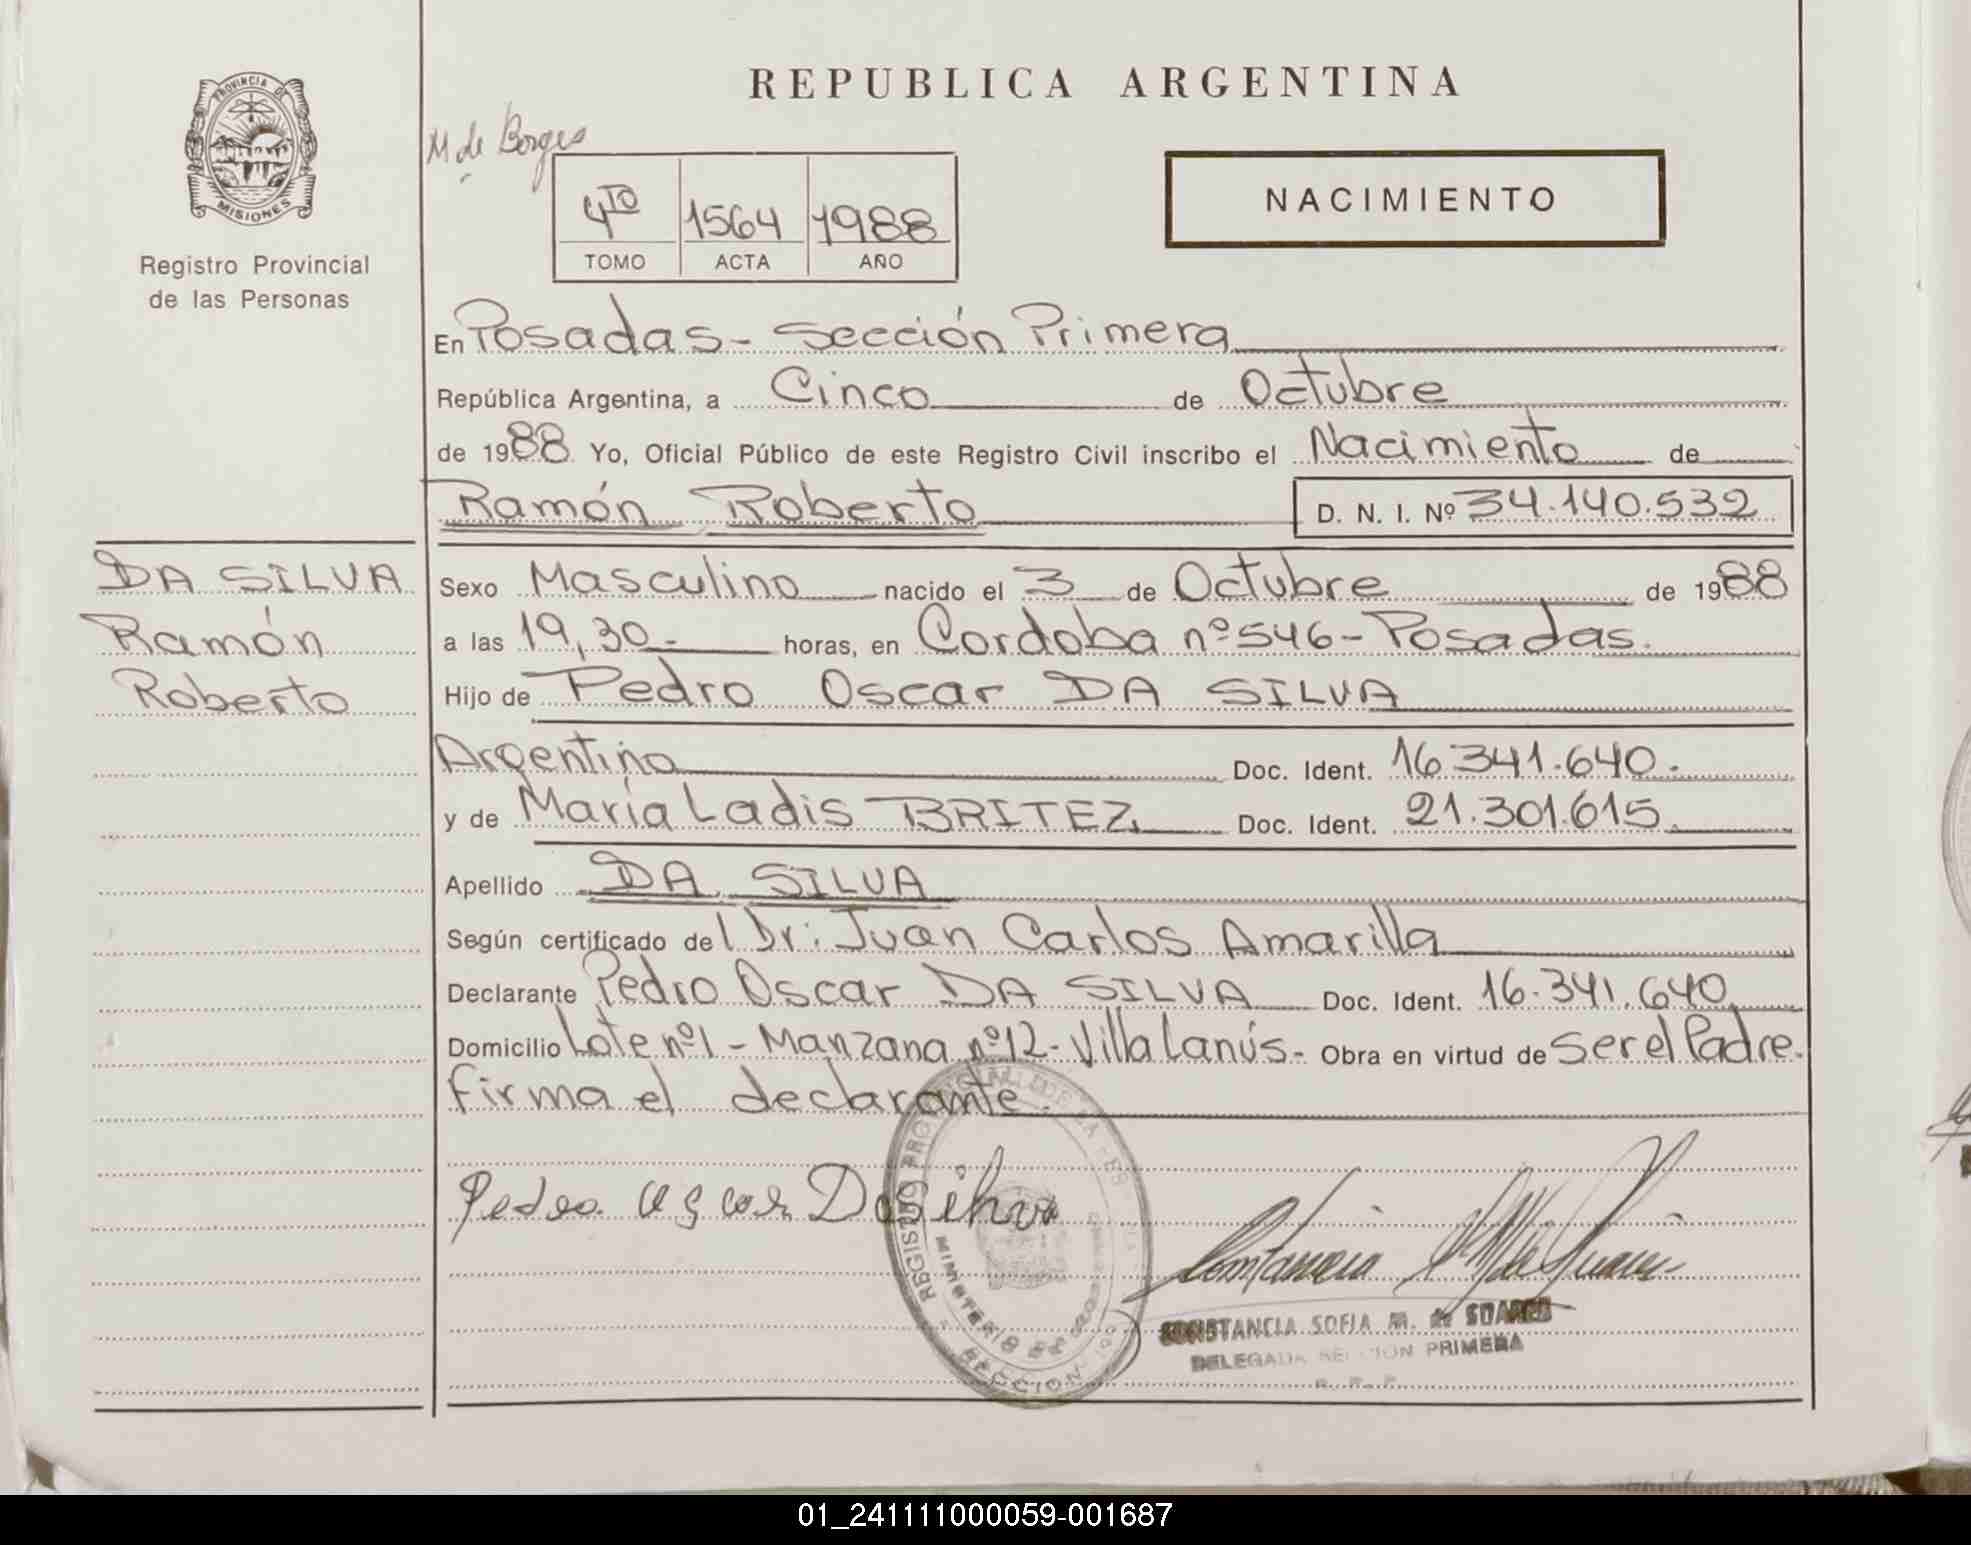 REPUBLICA ARGENTINA
PROVINCIA DE
MISIONES
Registro Provincial
de las Personas
M de Borges
4TO 1564 1988
TOMO ACTA AÑO
NACIMIENTO
En Posadas - Sección Primera
República Argentina, a Cinco de Octubre
de 1988 Yo, Oficial Público de este Registro Civil inscribo el Nacimiento de
Ramón Roberto D. N. I. Nº 34.140.532
DA SILVA
Ramón
Roberto
Sexo Masculino nacido el 3 de Octubre de 1988
a las 19,30.- horas, en Cordoba nº 546 - Posadas.
Hijo de Pedro Oscar DA SILVA
Argentino Doc. Ident. 16.341.640.
y de María Ladis BRITEZ Doc. Ident. 21.301.615.
Apellido DA SILVA
Según certificado del Dr: Juan Carlos Amarilla
Declarante Pedro Oscar DA SILVA Doc. Ident. 16.341.640
Domicilio Lote nº1 - Manzana nº12 - Villa Lanús - Obra en virtud de Ser el Padre.
Firma el declarante.
Pedro Oscar Da Silva
REGISTRO PROVINCIAL DE LAS
MINISTERIO DE
SECCION 1
CONSTANCIA SOFIA M. de SUAREZ
DELEGADA SECCION PRIMERA
R. P. P.
01_241111000059-001687